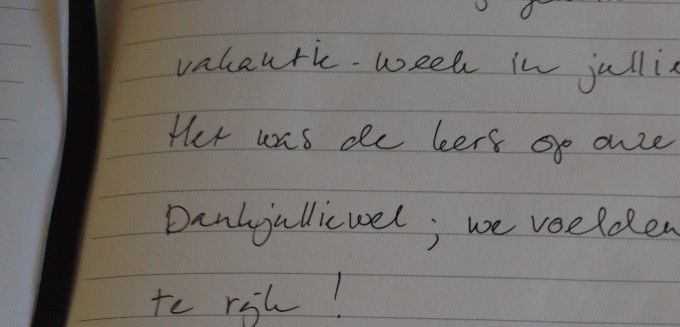 vakantie-week in jullie
Het was de kers op onze
Dankjulliewel; we voelden
te rijk!